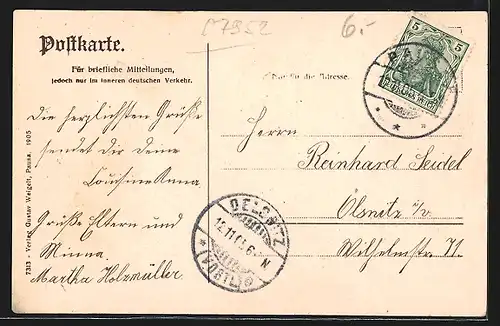 P7952
6.-
Postkarte.
Für briefliche Mitteilungen,
jedoch nur im inneren deutschen Verkehr.
Nur für die Adresse.
5 5
Die herzlichsten Grüße
sendet dir deine
Cousine Anna
Grüße Eltern und
Minna.
Martha Holzmüller
Herrn
Reinhard Seidel
Ölsnitz i/v.
Wilhelmstr. 71.
OELSNITZ
12.11.
(VOGTL.)
7313 - Verlag Gustav Weigelt, Pausa. 1905